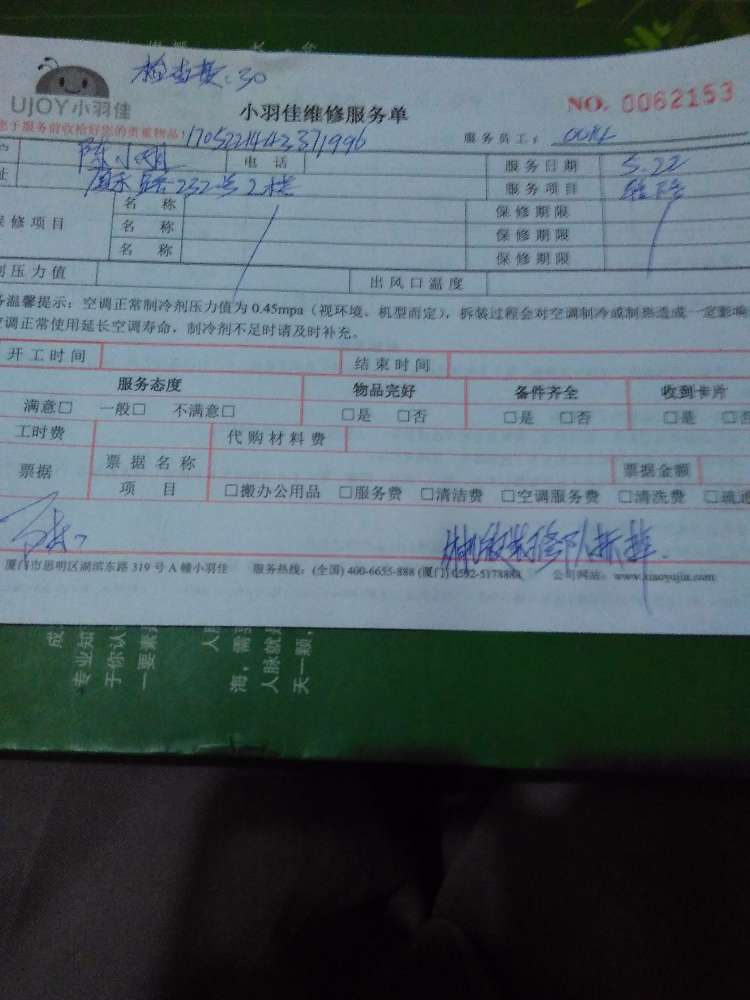 检查费:30
UJOY小羽佳
小羽佳维修服务单
NO. 0062153
您于服务前收拾好您的贵重物品!
服务员工:
电 话
服务日期 5.22
址 232号2楼
服务项目
保修项目
名 称
保修期限
名 称
保修期限
名 称
保修期限
剂压力值
出风口温度
务温馨提示:空调正常制冷剂压力值为0.45mpa(视环境、机型而定),拆装过程会对空调制冷或制热造成一定影响
空调正常使用延长空调寿命,制冷剂不足时请及时补充。
开工时间
结束时间
服务态度
物品完好
备件齐全
收到卡片
满意□ 一般□ 不满意□
□是 □否
□是 □否
□是 □否
工时费
代购材料费
票据
票据名称
票据金额
项 目
□搬办公用品 □服务费 □清洁费 □空调服务费 □清洗费 □疏通
厦门市思明区湖滨东路319号A幢小羽佳 服务热线:(全国)400-6655-888 (厦门)0592-5178888 公司网站:www.xiaoyujia.com
成
专业知
于你认
一要素
人脉
海,需
人脉就是
天一颗,